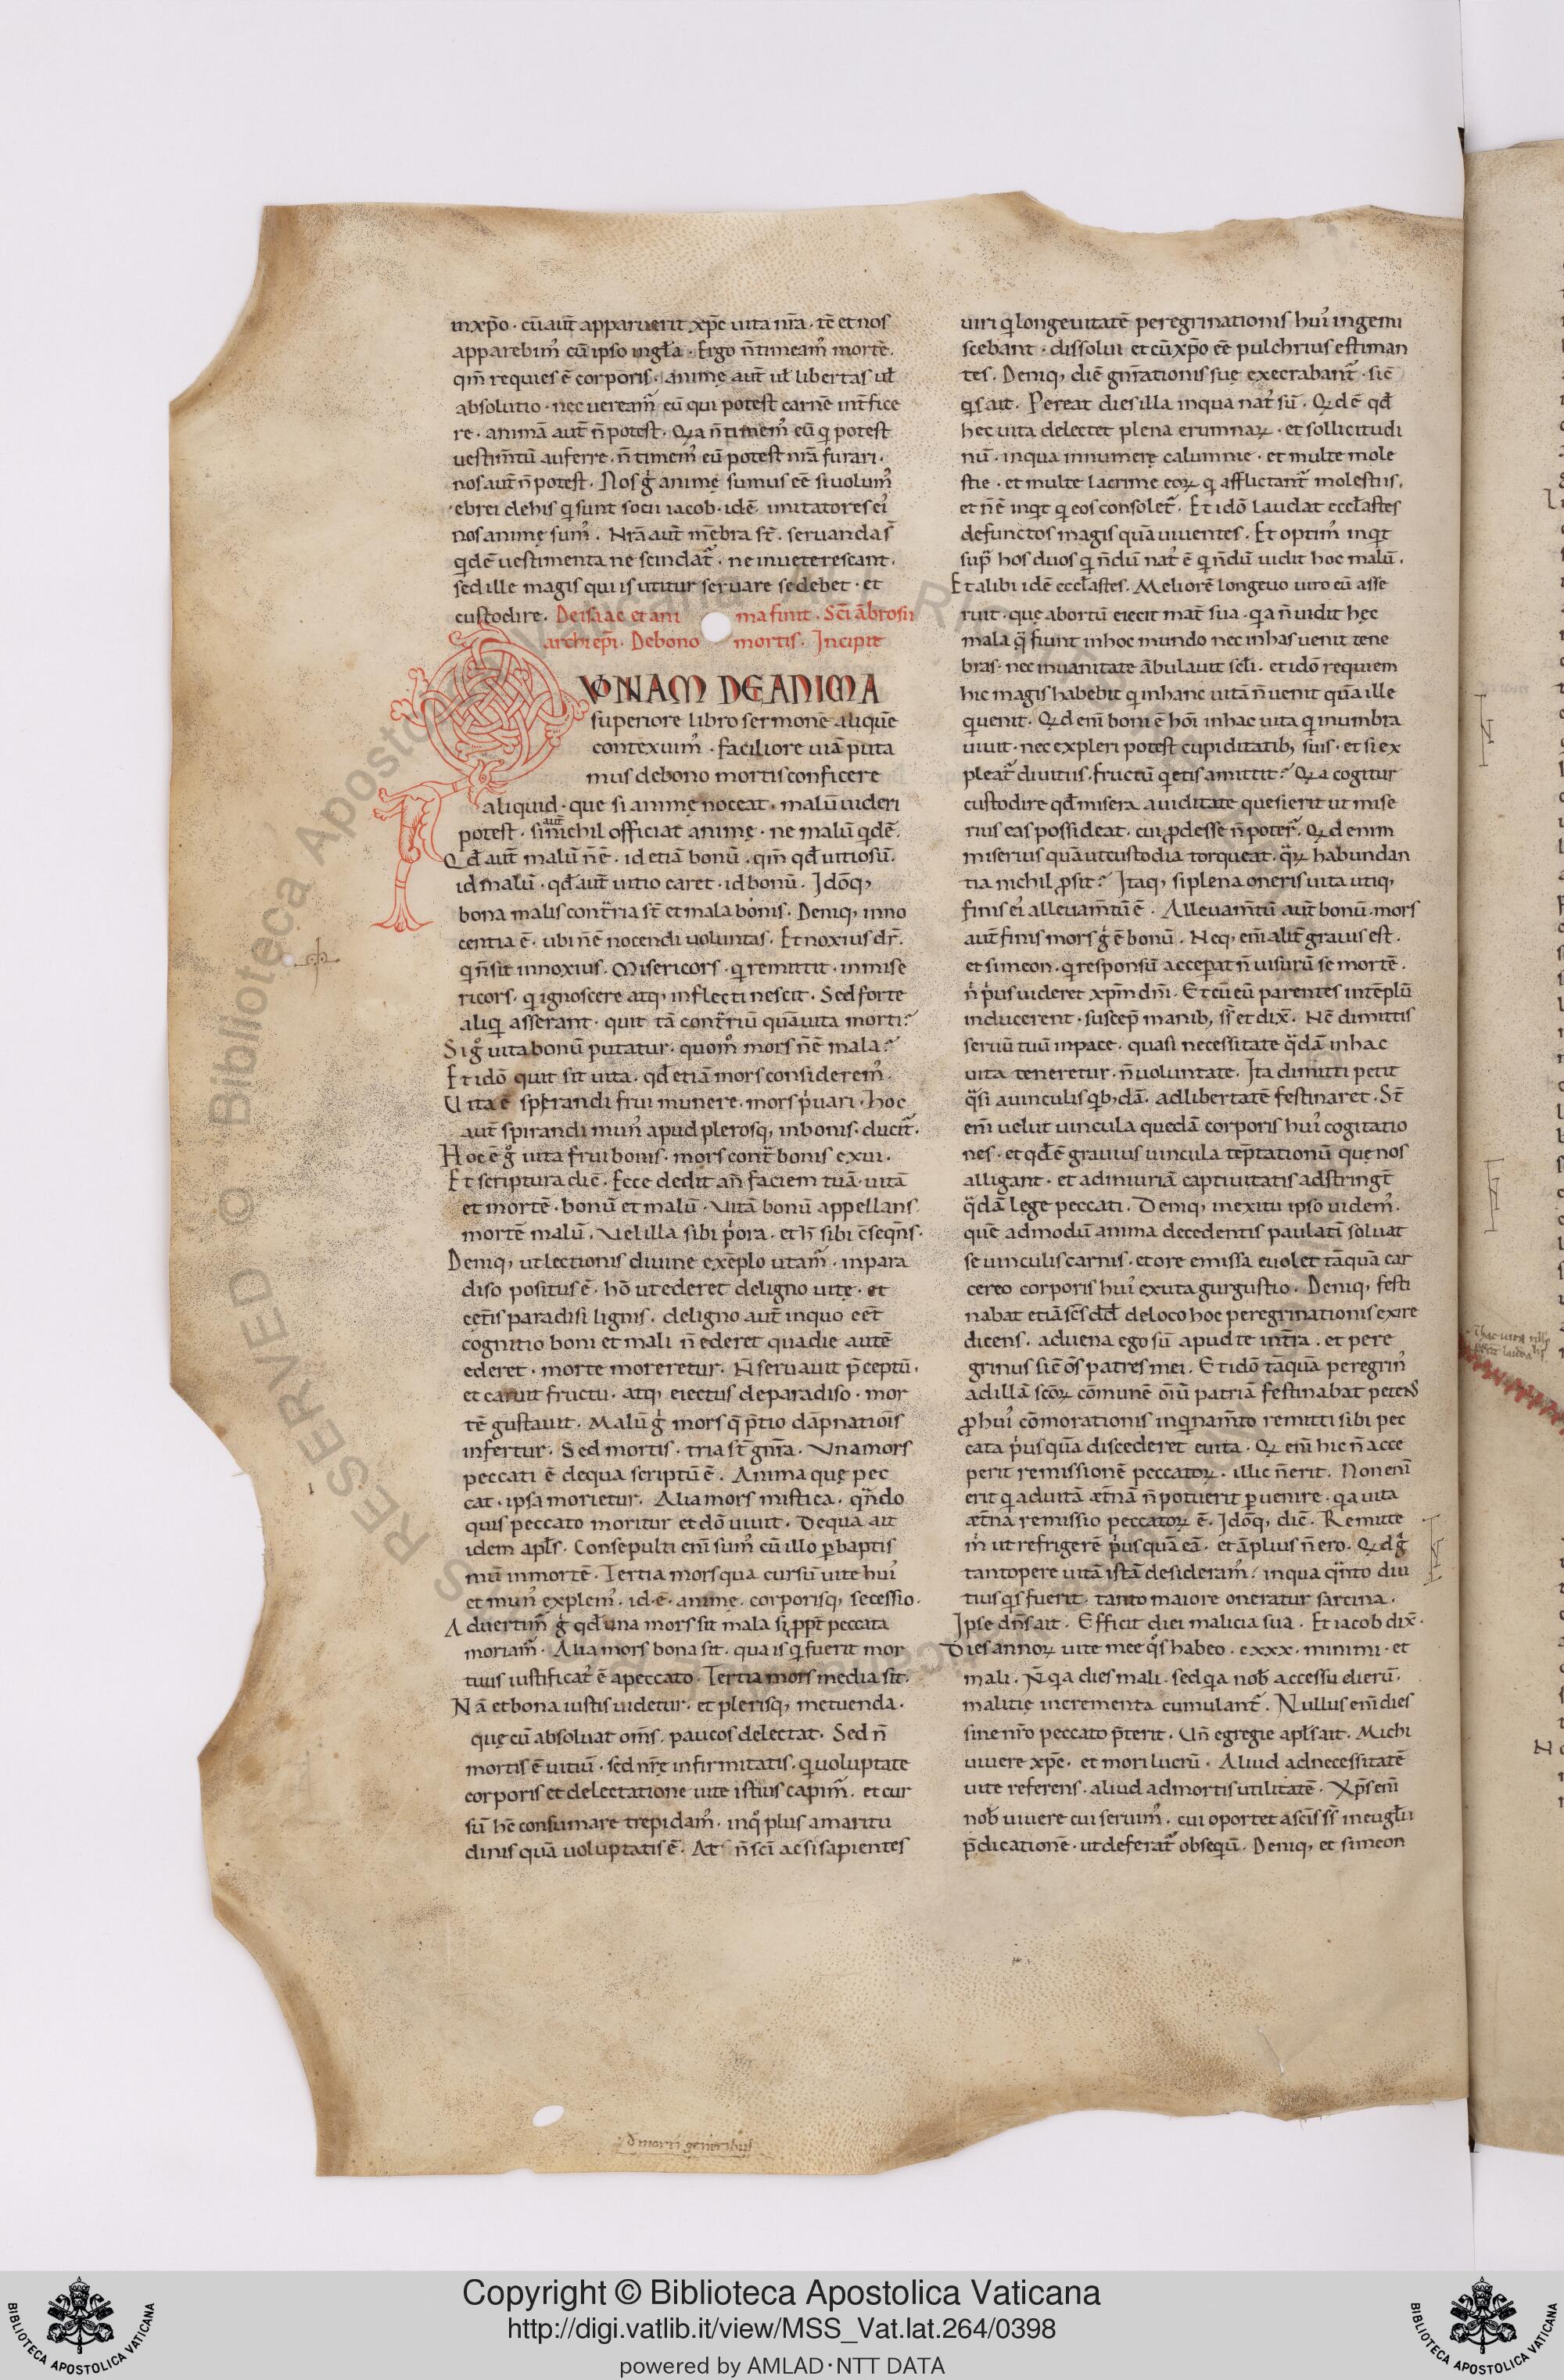 inxp̄o · cū aut̄ apparuerit xp̄c uita nr̄a · tē et nos
apparebim᷒ cū ipso in gl̄a · Ergo n̄ timeam᷒ mortē.
qm̄ requies ē corporis · animę aut̄ ul̄ libertas ul̄
absolutio · nec ueream̄ eū qui potest carnē int̄fice
re · animā aut̄ n̄ potest. Qꝛ a n̄ timem᷒ eū q potest
uestim̄tū auferre · n̄ timem᷒ eū potest nr̄a furari ·
nos aut̄ n̄ potest. Nos g̊ animę sumus eē si uolum᷒
ebrei de his q sunt socii iacob · idē imitatores ei᷒
nos animę sum᷒. Nr̄a aut̄ mēbra st̄. seruanda s̄
qdē uestimenta ne scindat᷑ · ne inueterescant ·
sed ille magis qui is utitur seruare se debet · et
custodire. De isaac et ani ma finit. Sc̄i ābrosii
archiep̄i. De bono mortis. Incipit
QVONIAM DE ANIMA
superiore libro sermonē aliquē
contexuim᷒ · faciliore uiā puta
mus de bono mortis conficere
aliquid · que si animę noceat · malū uideri
potest · si aut̄ nichil officiat animę · ne malū qdē.
Qd̄ aut̄ malū n̄ ē · id etiā bonū · qm̄ qd̄ uitiosū.
id malū · qd̄ aut̄ uitio caret · id bonū. Idōq,
bona malis cont̄ria st̄ et mala bonis. Deniq, inno
centia ē · ubi n̄ ē nocendi uoluntas. Et noxius dr̄.
q n̄ sit innoxius. Misericors · q remittit · inmise
ricors · q ignoscere atq, inflecti nescit. Sed forte
aliq asserant · quit tā cont̄riū quā uita morti?
Si g̊ uita bonū putatur · quom̊ mors n̄ ē mala?
Et idō quit sit uita · qd̄ etiā mors considerem᷒.
Uita ē sperandi frui munere · mors p̓uari · hoc
aut̄ spirandi mun᷒ apud plerosq, in bonis · ducit᷑.
Hoc ē g̊ uita frui bonis · mors cont̄ bonis exui.
Et scriptura dic̄. Ecce dedit an̄ faciem tuā · uitā
et mortē · bonū et malū · Vitā bonū appellans
mortē malū. Vel illa sibi p̓ora · et h̄ sibi c̄seqn̄s ·
Deniq, ut lectionis diuine exēplo utam᷑ · in para
diso positus ē · hō ut ederet de ligno uitę · et
cęt̄is paradisi lignis · de ligno aut̄ in quo eet̄
cognitio boni et mali n̄ ederet qua die autē
ederet · morte moreretur. N̄ seruauit p̄ceptū ·
et caruit fructu · atq, eiectus de paradiso · mor
tē gustauit. Malū g̊ mors q̄ p̄tio dāpnatiōis
infertur. Sed mortis · tria st̄ gn̄ra. Vna mors
peccati ē de qua scriptū ē. Anima quę pec
cat · ipsa morietur. Alia mors mistica · qn̄do
quis peccato moritur et dō uiuit. De qua ait
idem apl̄s. Consepulti eni᷒ sum᷒ cū illo p baptis
mū in mortē · Tertia mors qua cursū uite hui᷒
et mun᷒ explem᷒ · id · ē · animę · corporisq, secessio ·
Aduertim᷒ g̊ qd̄ una mors sit mala si ppt̄ peccata
moriam᷑ · Alia mors bona sit · qua is q fuerit mor
tuus iustificat᷒ ē a peccato · Tertia mors media sit.
Nā et bona iustis uidetur · et plerisq, metuenda ·
quę cū absoluat om̄s · paucos delectat. Sed n̄
mortis ē uitiū · sed nr̄ę infirmitatis · q uoluptate
corporis et delectatione uite istius capim᷑ · et cur
sū hc̄ consumare trepidam᷒ · in q̊ plus amaritu
dinis quā uoluptatis ē. At n̄ sc̄i ac si sapientes
uiri q longeuitatē peregrinationis hui᷒ ingemi
scebant · dissolui et cū xp̄o eē pulchrius estiman
tes. Deniq, diē gn̄rationis suę execrabant᷑ · sic̄
qs ait. Pereat dies illa in qua nat᷒ sū. Qꝛ d ē qd̄
hec uita delectet plena erumnaꝝ · et sollicitudi
nū · in qua innumerę calumnie · et multe mole
stie · et multe lacrime eoꝝ q afflictant᷑ molestiis,
et n̄ ē inqt q eos consolet᷑. Et idō laudat eccl̄astes
defunctos magis quā uiuentes. Et optim᷒ inqt
sup̄ hos duos q n̄dū nat᷒ ē q n̄dū uidit hoc malū.
Et alibi idē eccl̄astes. Meliorē longeuo uiro eū asse
ruit · que abortū eiecit mat̄ sua · q a n̄ uidit hęc
mala q̄ fiunt in hoc mundo nec in has uenit tene
bras · nec in uanitate ābulauit scl̄i. et idō requiem
hic magis habebit q in hanc uitā n̄ uenit quā ille
q uenit. Qꝛ d eni᷒ boni ē hōi in hac uita q in umbra
uiuit · nec expleri potest cupiditatib, suis · et si ex
pleat᷑ diuitiis · fructū qetis amittit? Qꝛ a cogitur
custodire qd̄ misera auiditate quesierit ut mise
rius eas possideat · cui ꝓdesse n̄ poter̄. Qꝛ d enim
miserius quā ut custodia torqueat · q̄ꝝ habundan
tia nichil ꝓsit? Itaq, si plena oneris uita utiq,
finis ei᷒ alleuam̄tū ē. Alleuam̄tū aut̄ bonū · mors
aut̄ finis mors g̊ ē bonū. Neq, eni᷒ alit̄ grauis est.
et simeon · q responsū acceperat n̄ uisurū se mortē.
n̄ p̓us uideret xpm̄ dn̄i. Et cū eū parentes in tēplū
inducerent · suscep̄ manib, ss̄ et dix̄. Nc̄ dimittis
seruū tuū in pace · quasi necessitate q̄dā in hac
uita teneretur · n̄ uoluntate. Ita dimitti petit
q̄si a uinculis qb,dā · ad libertatē festinaret. St̄
eni᷒ uelut uincula quedā corporis hui᷒ cogitatio
nes · et qd̄ ē grauius uincula tēptationū quę nos
alligant · et ad iniuriā captiuitatis adstringt̄
q̄dā lege peccati. Deniq, in exitu ipso uidem᷒.
quē admodū anima decedentis paulati᷒ soluat
se uinculis carnis · et ore emissa euolet tāquā car
cereo corporis hui᷒ exuta gurgustio. Deniq, festi
nabat etiā sc̄s dd̄ de loco hoc peregrinationis exire
dicens · aduena ego sū apud te in t̄ra · et pere
grinus sic̄ ōs patres mei. Et idō tāquā peregrin᷒
ad illā sc̄oꝝ cōmunē ōiū patriā festinabat petens
ꝓ hui᷒ cōmorationis inqinam̄to remitti sibi pec
cata p̓us quā discederet e uita. Qꝛ eni᷒ hic n̄ acce
perit remissionē peccatoꝝ · illic n̄ erit. Non eni᷒
erit q ad uitā æt̄nā n̄ potuerit puenire · q a uita
æt̄na remissio peccatoꝝ ē. Idōq, dic̄. Remitte
m̓ ut refrigerē p̓us quā eā · et āplius n̄ ero. Qꝛ d g̊
tantopere uitā istā desideram᷒ · in qua q̄nto diu
tius qs fuerit · tanto maiore oneratur sarcina.
Ipse dn̄s ait. Efficit diei malicia sua. Et iacob dix̄.
Dies annoꝝ uite mee q̊s habeo · cxxx · minimi · et
mali. N̄ q a dies mali · sed q a nob̄ accessu dierū.
malitię incrementa cumulant᷑. Nullus eni᷒ dies
sine nr̄o peccato p̄terit. Un̄ egregie apl̄s ait. Michi
uiuere xp̄c · et mori lucrū. Aliud ad necessitatē
uite referens · aliud ad mortis utilitatē. Xp̄s eni᷒
nob̄ uiuere cui seruim᷒ · cui oportet a sc̄is ss̄ in eugl̄ii
p̄dicatione · ut deferat᷑ obseqū. Deniq, et simeon
Copyright © Biblioteca Apostolica Vaticana
http://digi.vatlib.it/view/MSS_Vat.lat.264/0398
powered by AMLAD·NTT DATA
BIBLIOTECA APOSTOLICA VATICANA
BIBLIOTECA APOSTOLICA VATICANA